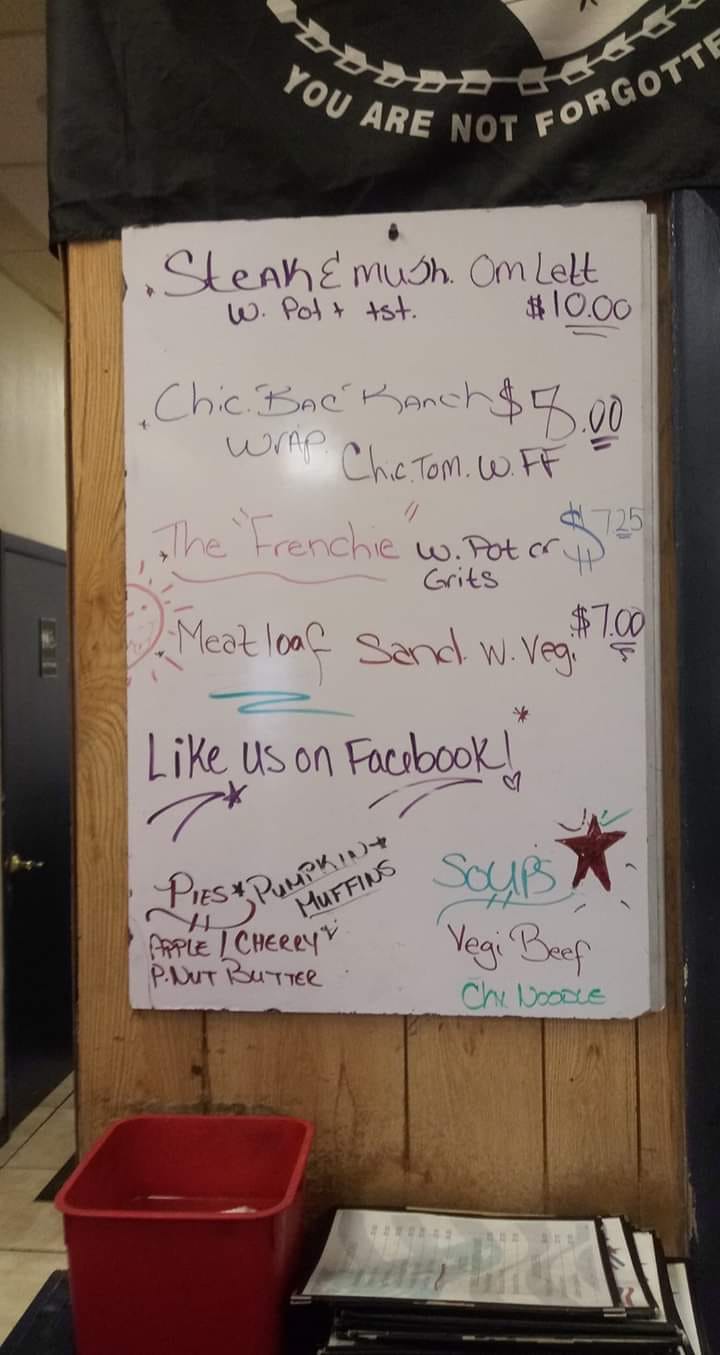 YOU ARE NOT FORGOTTE
Steak & mush. Omlett
w. Pot + tst. $10.00
Chic. "Bac" Ranch $8.00
Wrap. Chic. Tom. W. FF
The "Frenchie" w. Pot or $7.25
Grits
Meatloaf Sand. W. Veg. $7.00
Like us on Facebook!
PIES * PUMPKIN *
MUFFINS
APPLE / CHERRY
P.NUT BUTTER
SOUPS
Vegi Beef
Chx Noodle